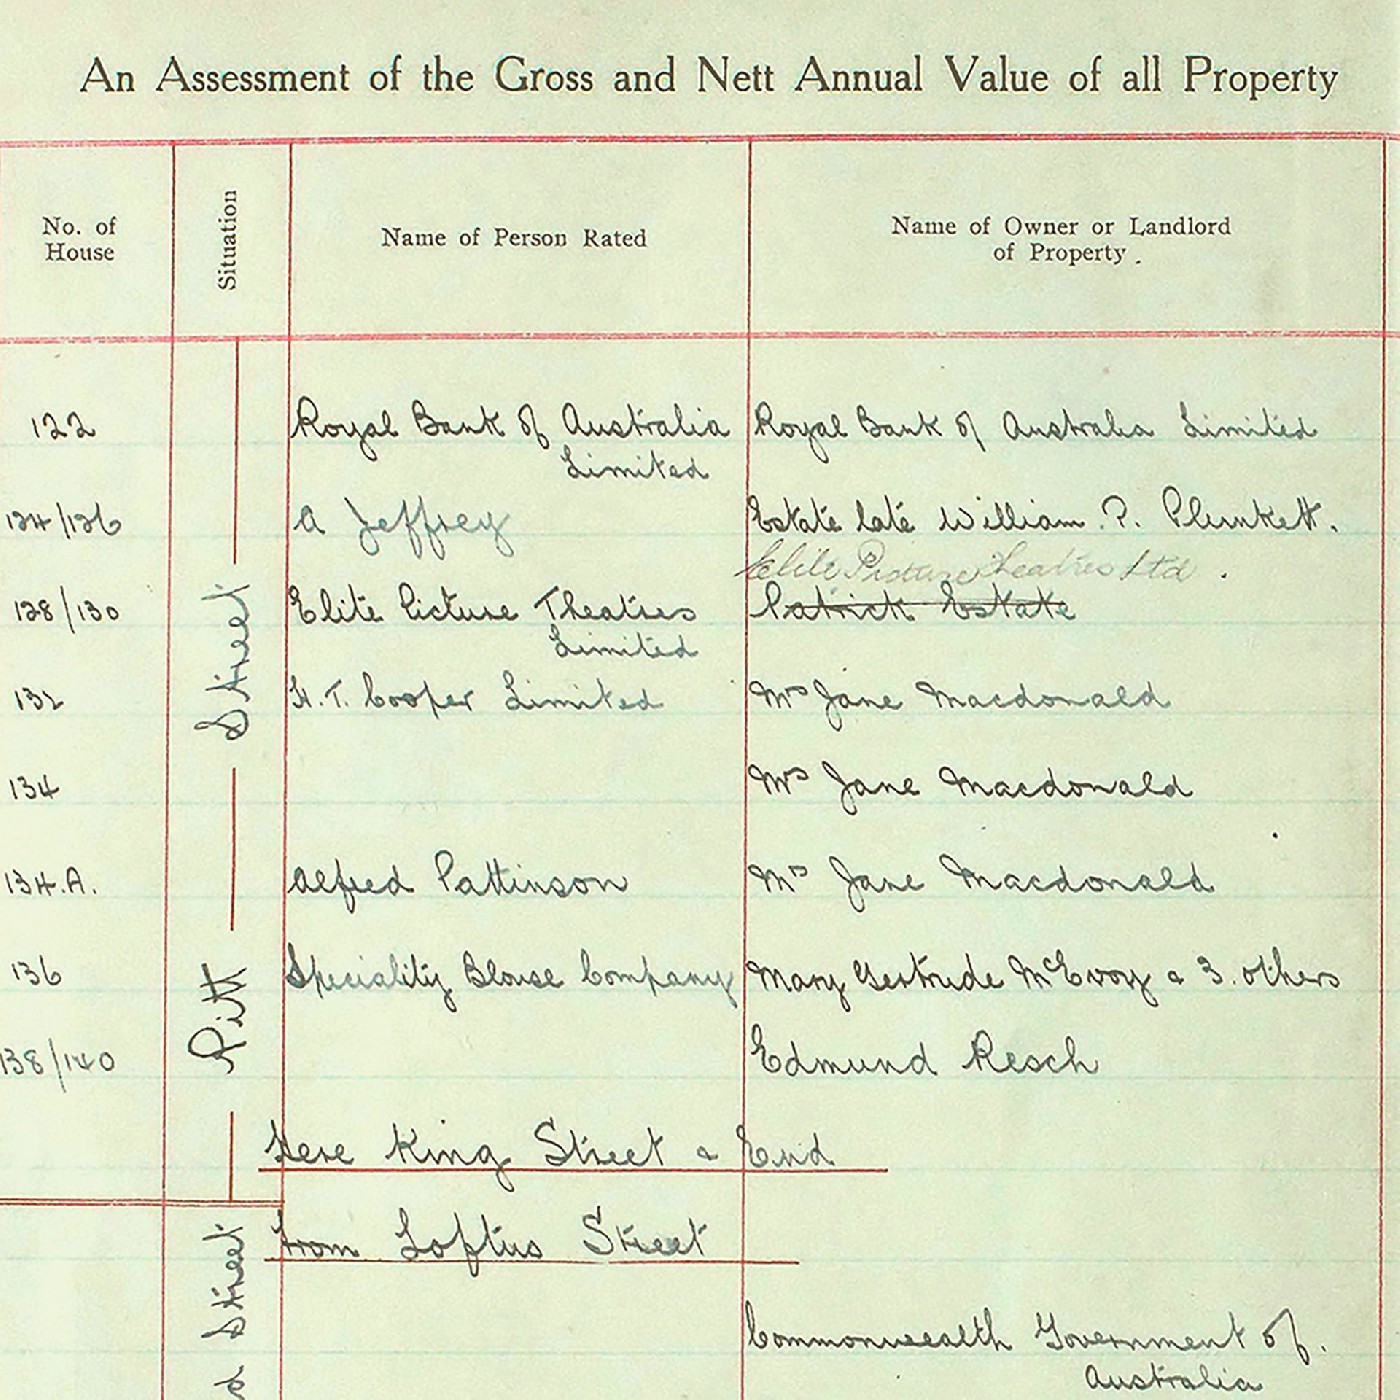 An Assessment of the Gross and Nett Annual Value of all Property
No. of House
Situation
Name of Person Rated
Name of Owner or Landlord of Property.
Pitt Street
122 Royal Bank of Australia Royal Bank of Australia Limited
Limited
124/126 A Jeffrey Estate late William. P. Plunkett.
Elite Picture Theatres Ltd.
128/130 Elite Picture Theatres Patrick Estate
Limited
132 H. T. Cooper Limited Mrs Jane Macdonald
134 Mrs Jane Macdonald
134.A. Alfred Pattinson Mrs Jane Macdonald
136 Speciality Blouse Company Mary Gertrude McEvoy & 3. others
138/140 Edmund Resch
Here King Street & End
From Loftus Street
d Street
Commonwealth Government of.
Australia